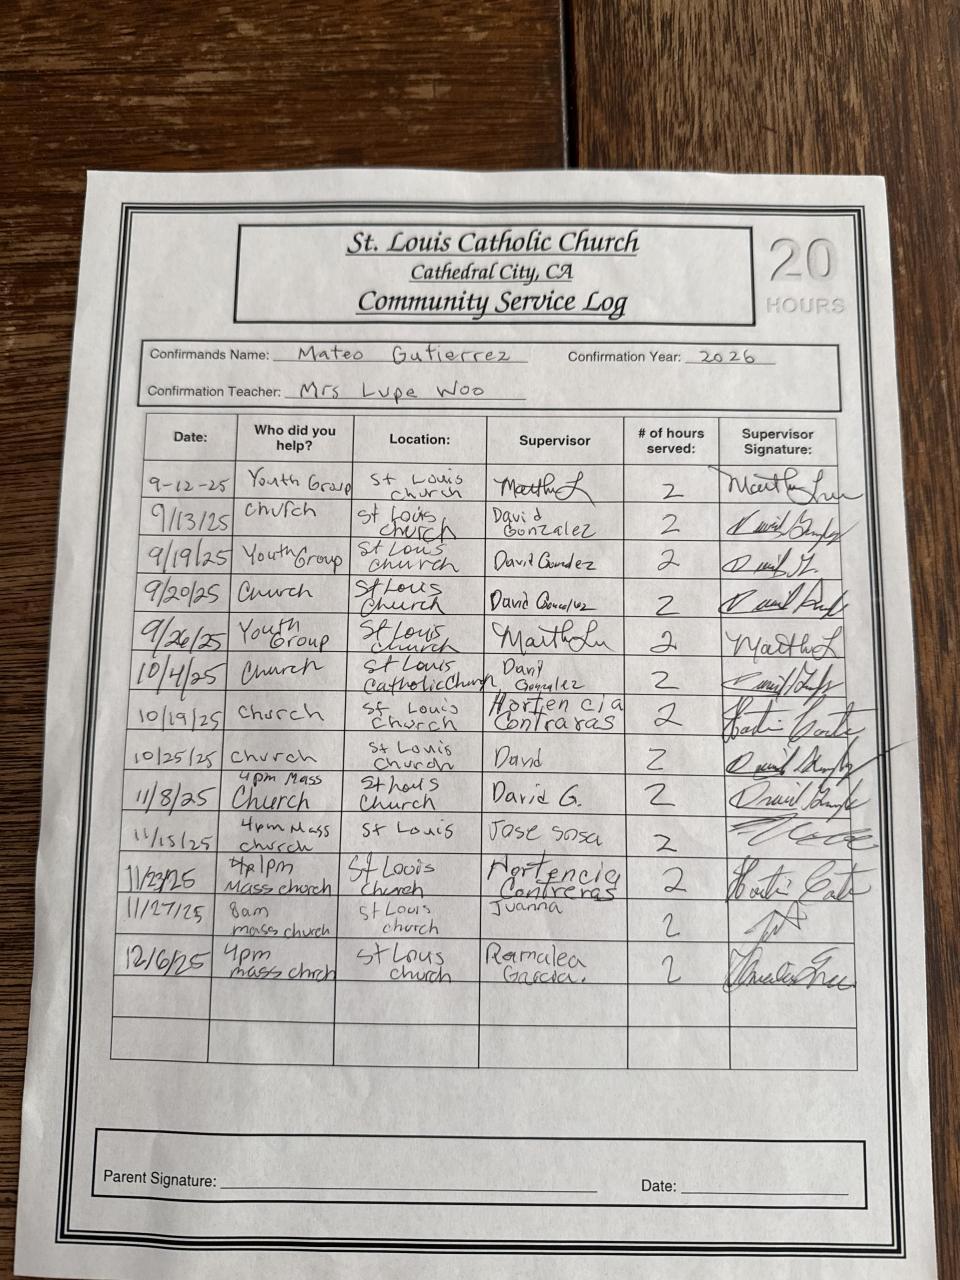 St. Louis Catholic Church
Cathedral City, CA
Community Service Log
20
HOURS
Confirmands Name: Mateo Gutierrez Confirmation Year: 2026
Confirmation Teacher: Mrs Lupe Woo
Date: Who did you help? Location: Supervisor # of hours served: Supervisor Signature:
9-12-25 Youth Group St Louis church 2
9/13/25 church St Louis church David Gonzalez 2
9/19/25 Youth Group St Louis church David 2
9/20/25 Church St Louis Church David 2
9/26/25 Youth Group St Louis church 2
10/4/25 Church St Louis Catholic Church David Gonzalez 2
10/19/25 church St Louis Church Hortencia Contraras 2
10/25/25 church St Louis church David 2
11/8/25 4pm Mass Church St Louis Church David G. 2
11/15/25 4pm Mass church St Louis Jose Sosa 2
11/23/25 1pm Mass church St Louis church Hortencia Contreras 2
11/27/25 8am mass church St Louis church Juanna 2
12/6/25 4pm mass chrch St Lous church Garcia. 2
Parent Signature: Date: